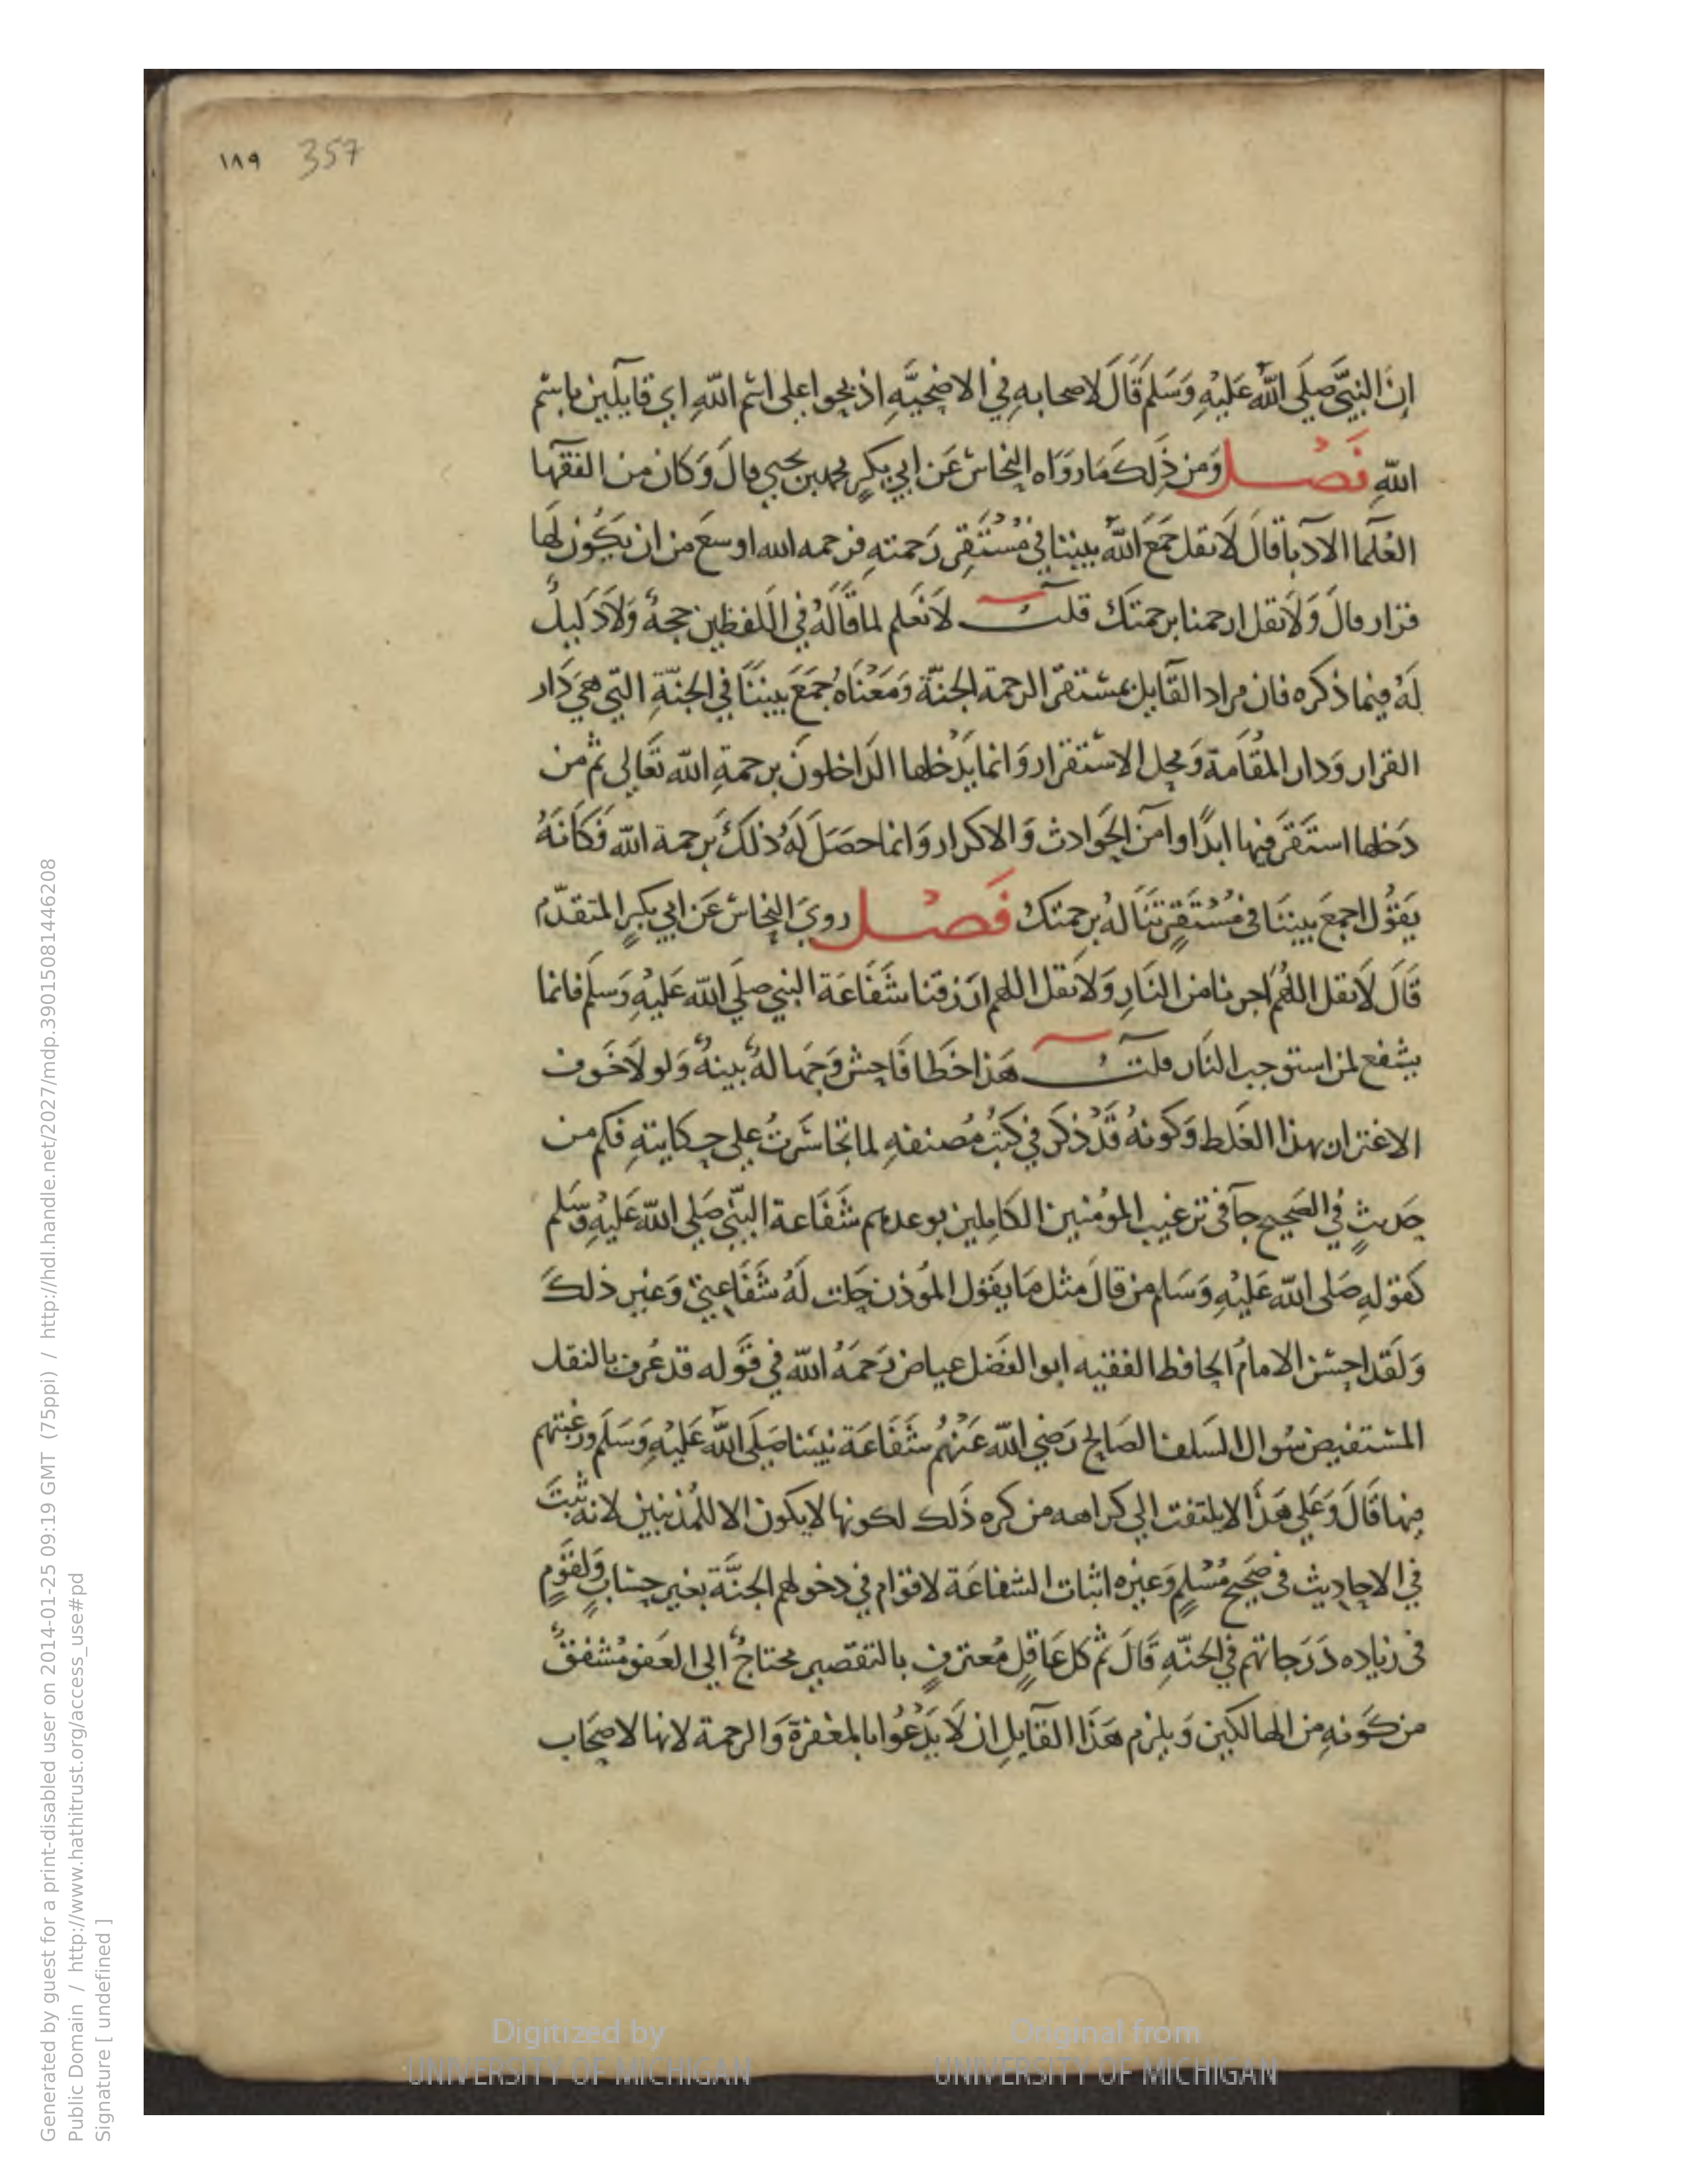 ١٨٩ 357
اِنَّ النَّبِيَّ صَلَى اللّهُ عَليْهِ وَسَلَم قَالَ لاصحابهِ في الاضحيَّهِ اذبحوا على اسْم اللّهِ اي قايلين باسْم
اللّهِ فَصْــل وَمن ذلك مَا روَاه النحاس عَن ابي بكرٍ محمد بن يحيي قال وَكان من الفقها
العُلما الادبا قال لَا تقل جَمَعَ اللّهُ بيننا في مُسْتَقِر رَحمته فرحمه الله اوسعَ من ان يَكُون لها
قرار قالَ وَلَا تقل ارحمنا برحمتك قلت لَا نَعلم لما قَالَهُ في اللفظين حجةٌ وَلَا دَليلٌ
لهُ فيما ذكره فان مراد القَايل بمستقرّ الرحمة الجنّة وَمَعْنَاه جُمَعَ بينَنَا في الجنّةِ التي هيَ دَار
القرار وَدار المُقَامة وَمحل الاسْتقرار وَانما يدْخلها الدَاخلونَ برحمةِ اللّه تعَالى ثم من
دَخلها استَقرَّ فيها ابدًا وامن الحَوادث وَالاكدار وَانما حصَلَ لَهُ ذلكَ برحمة اللّه فَكَانهُ
يَقوُل اجمعَ بيننَا في مُسْتَقِرٍ تَنَالهُ برحمتك فَصْــل رويَ النحاس عَن ابي بكرٍ المتقدّم
قَالَ لَا تقل اللهُم اجرنا من النَارِ وَلَا تقل اللهم ارزقنا شَفَاعَة النبي صلى اللّه عَليْهِ وَسلَم فانما
يشفع لمن استوجب النَار قلت هَذا خَطا فَاحِش وَجَهالهٌ بينهٌ وَلو لَا خَوف
الاغترار بهذا الغَلط وَكونهُ قَدْ ذكرَ في كتبُ مُصنفهِ لما تجَاسَرتُ على حِكايتهِ فكم من
حَديثٍ في الصَحيح جآ في ترغيب المؤمنين الكَامِلين بوعدهم شَفَاعة النبّي صَلى اللّه عَليْهِ وسَلم
كقولهِ صَلى اللّه عَليْهِ وَسَلم من قالَ مثل مَا يقوُل المُوذن حَلت لَهُ شَفَاعتي وَغير ذلكَ
وَلَقد احسَن الامامُ الحَافظ الفقيه ابوا الفضل عياض رَحمَهُ اللّه في قَوله قد عُرف بالنقل
المستفيض سُوال السَلف الصَالح رَضي اللّه عَنْهُم شَفَاعَة نبيّنا صَلَى اللّه عَليْهِ وَسَلَم ورغبتهم
فيها قَالَ وَعَلى هَذا لا يلتفت الى كراهه من كره ذَلك لكونها لا يكون الا للمُذنبين لانه ثبتَ
في الاحاديث في صَحيح مُسْلمٍ وَغيره اثبات الشفاعَة لاقوَام في دخولهم الجنَّة بغير حسَابٍ وَلقوَمٍ
في زياده دَرَجاتهم في الجنّهِ قَالَ ثم كل عَاقِلٍ مُعترفٍ بالتقصير محتاجٌ الى العَفو مُشْفِقٌ
من كَونهِ من الهالكين وَيلزم هَذَا القَايل ان لَا يَدْعُوا بالمغفرة وَالرحمة لانها لاصحَاب
Digitized by
UNIVERSITY OF MICHIGAN
Original from
UNIVERSITY OF MICHIGAN
Generated by guest for a print-disabled user on 2014-01-25 09:19 GMT (75ppi) / http://hdl.handle.net/2027/mdp.39015081446208
Public Domain / http://www.hathitrust.org/access_use#pd
Signature [ undefined ]